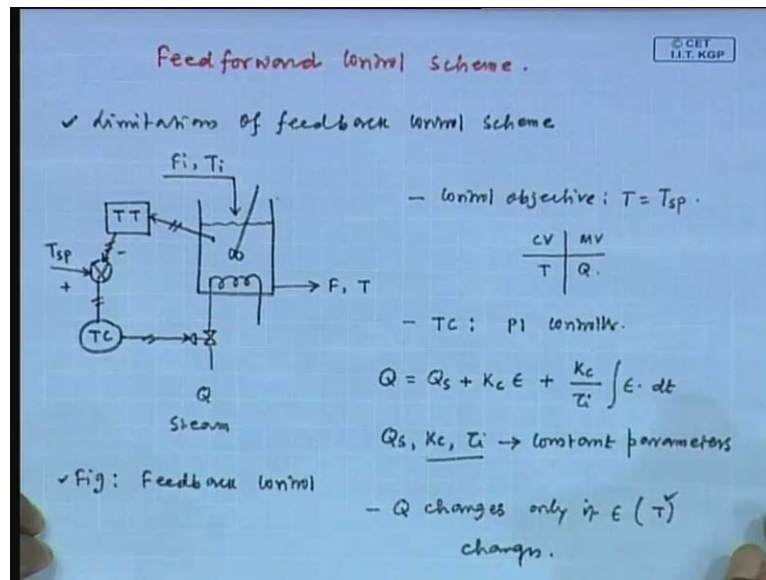 Feedforward Control Scheme.
© CET
I.I.T. KGP
✓ Limitations of feedback control scheme
Fi, Ti
TT
Tsp
+
-
TC
F, T
Q
Steam
✓ Fig: Feedback control
- Control objective: T = Tsp.
CV | MV
T | Q.
- TC: PI controller.
Q = Qs + Kc ε + Kc/τi ∫ε. dt
Qs, Kc, τi → constant parameters
- Q changes only if ε (T)
changes.